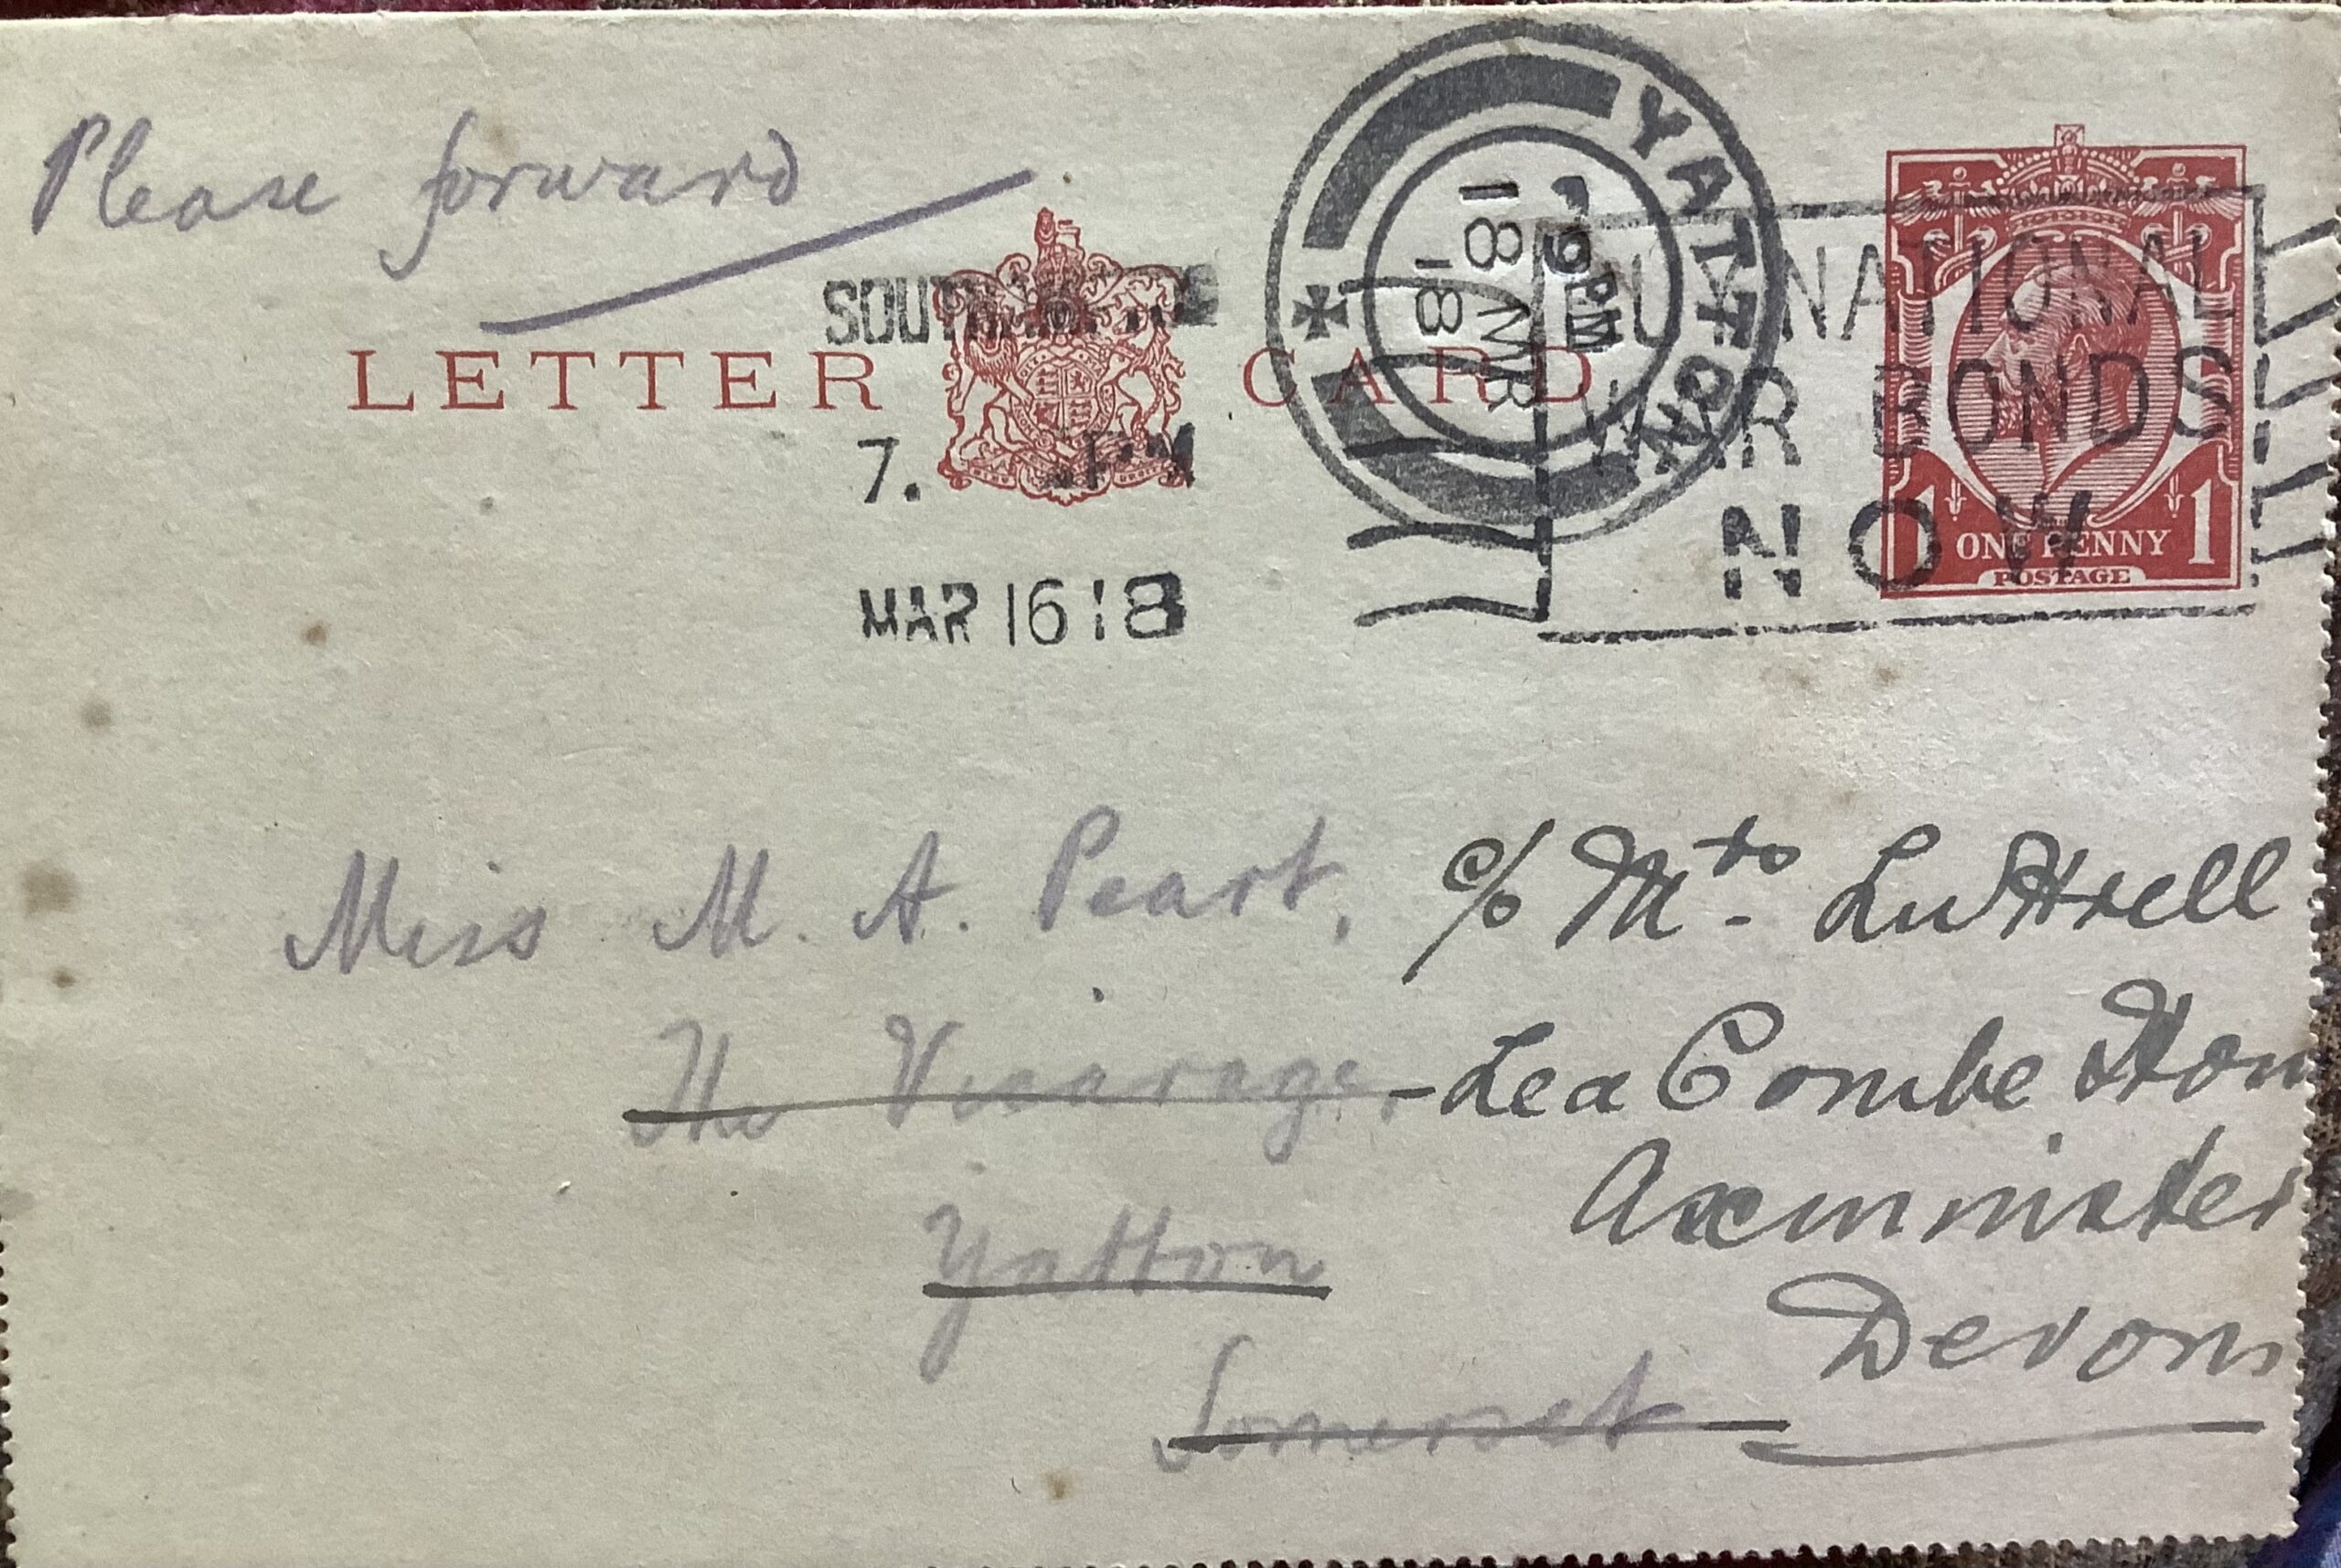 Please forward
SOUTHAMPTON
LETTER CARD
7. PM
MAR 16 18
YATTON
9 PM
18 MR
18
BUY NATIONAL
WAR BONDS
NOW
1 1
ONE PENNY
POSTAGE
Miss M. A. Peart,
The Vicarage,
Yatton
Somerset
c/o Mrs Luttrell
Lea Combe
Axminster
Devon